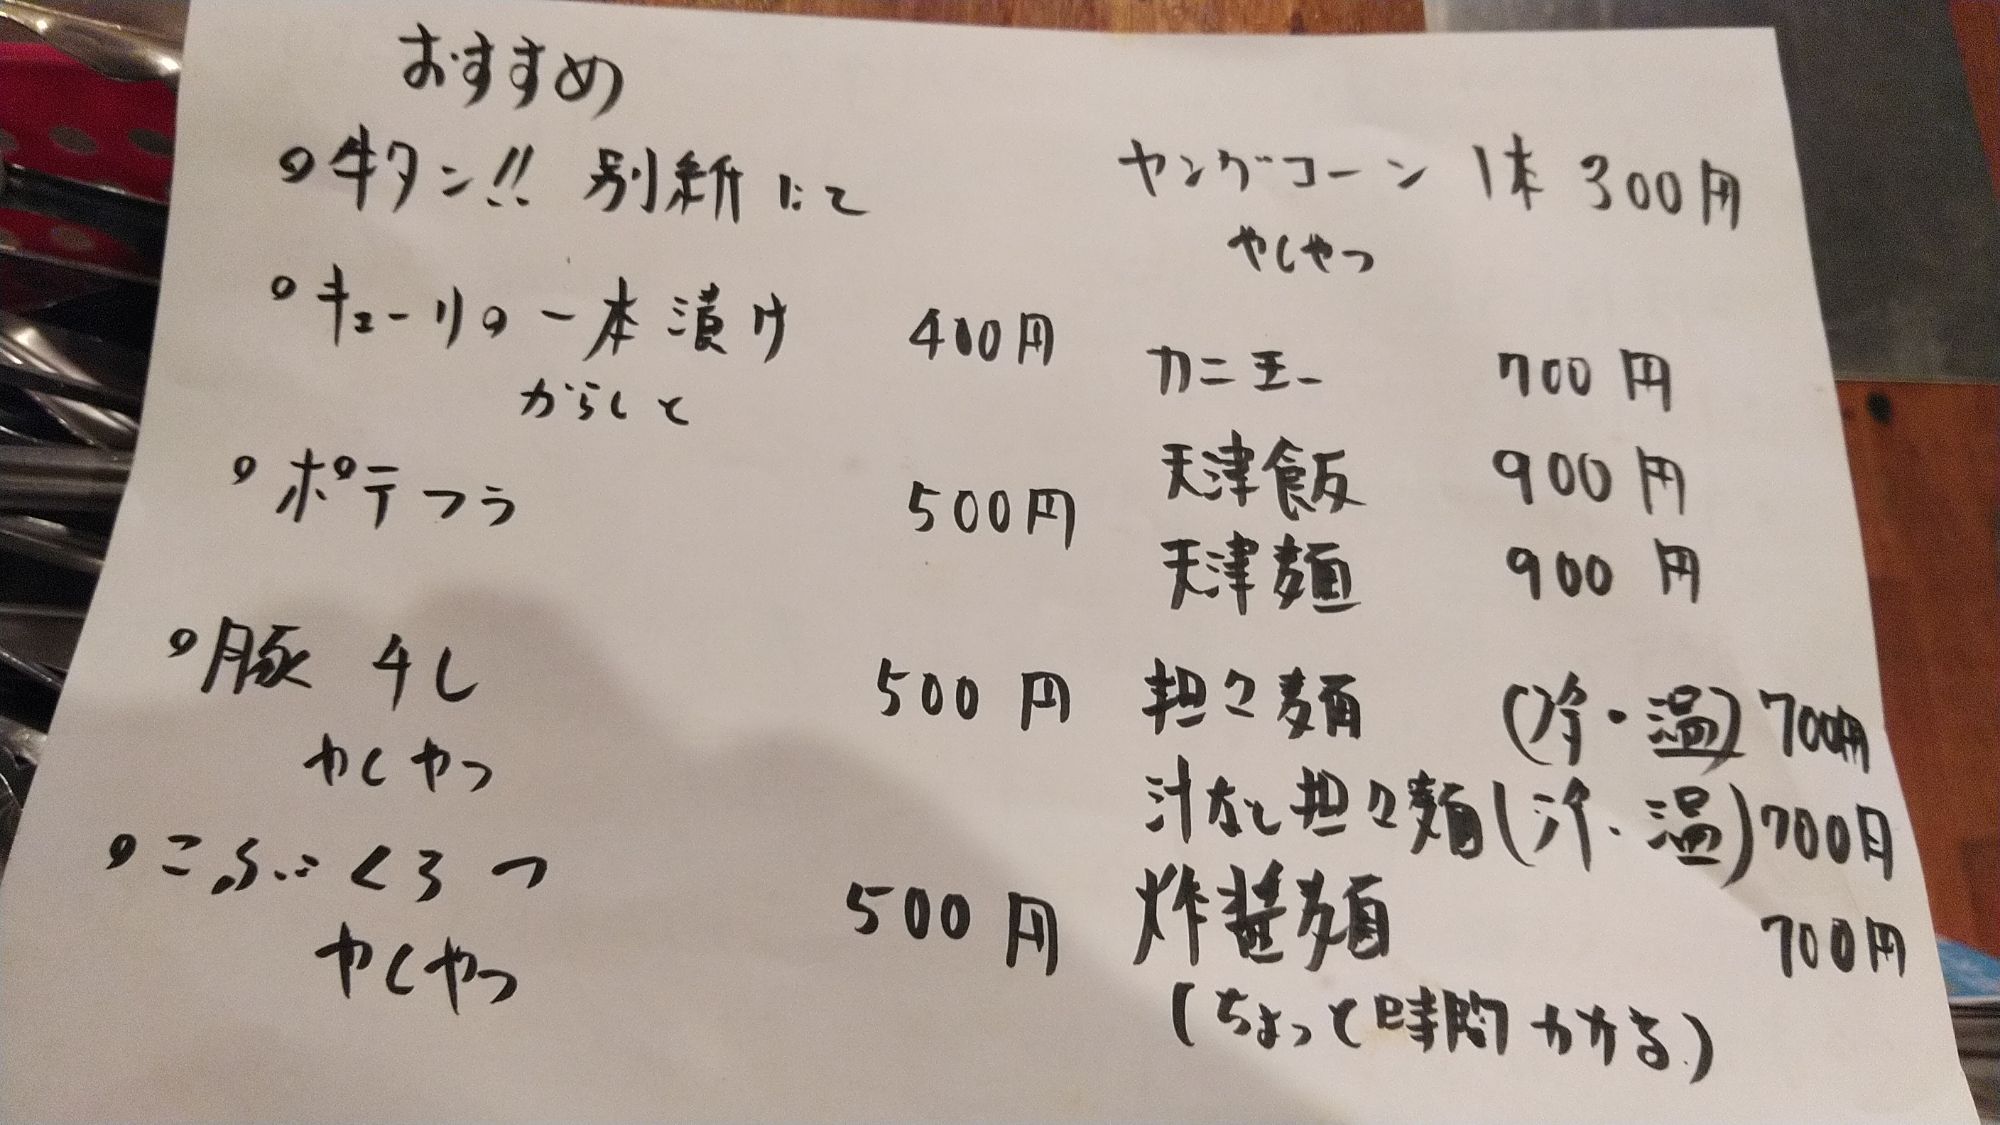 おすすめ
牛タン!! 別紙にて
キューりの一本漬け 400円
からしと
ポテフラ 500円
豚チし 500円
やくやつ
こぶくろつ 500円
やくやつ
ヤングコーン 1本 300円
やしやつ
カニ玉 700円
天津飯 900円
天津麺 900円
担々麺 (冷・温) 700円
汁なし担々麺 (冷・温) 700円
炸醤麺 700円
(ちょっと時間かかる)